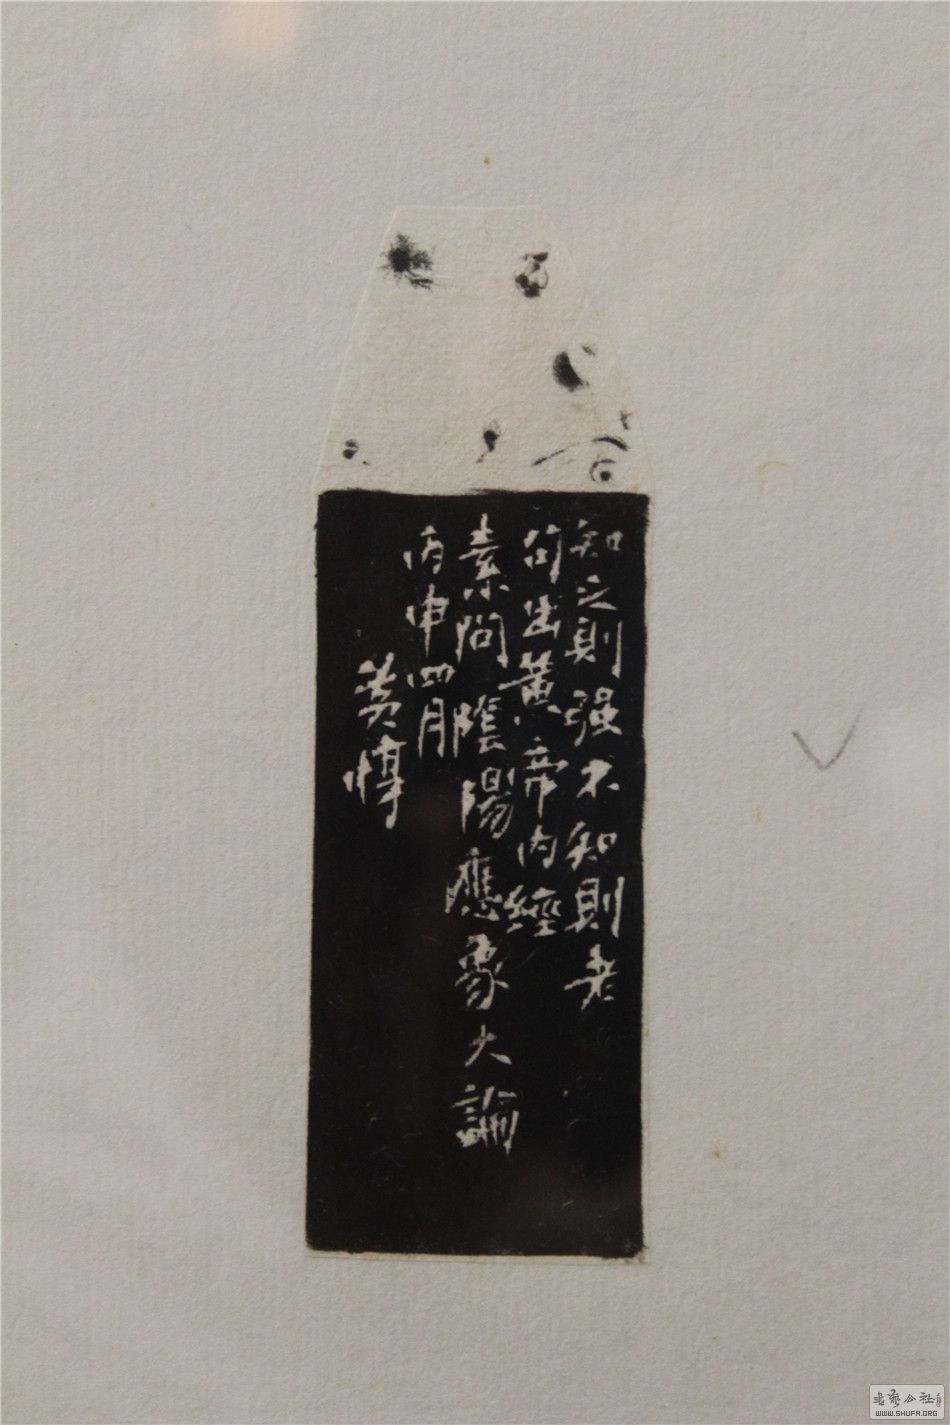 知之則强不知則老
句出黄帝内經
素問陰陽應象大論
丙申四月
黄惇
WWW.SHUFA.ORG